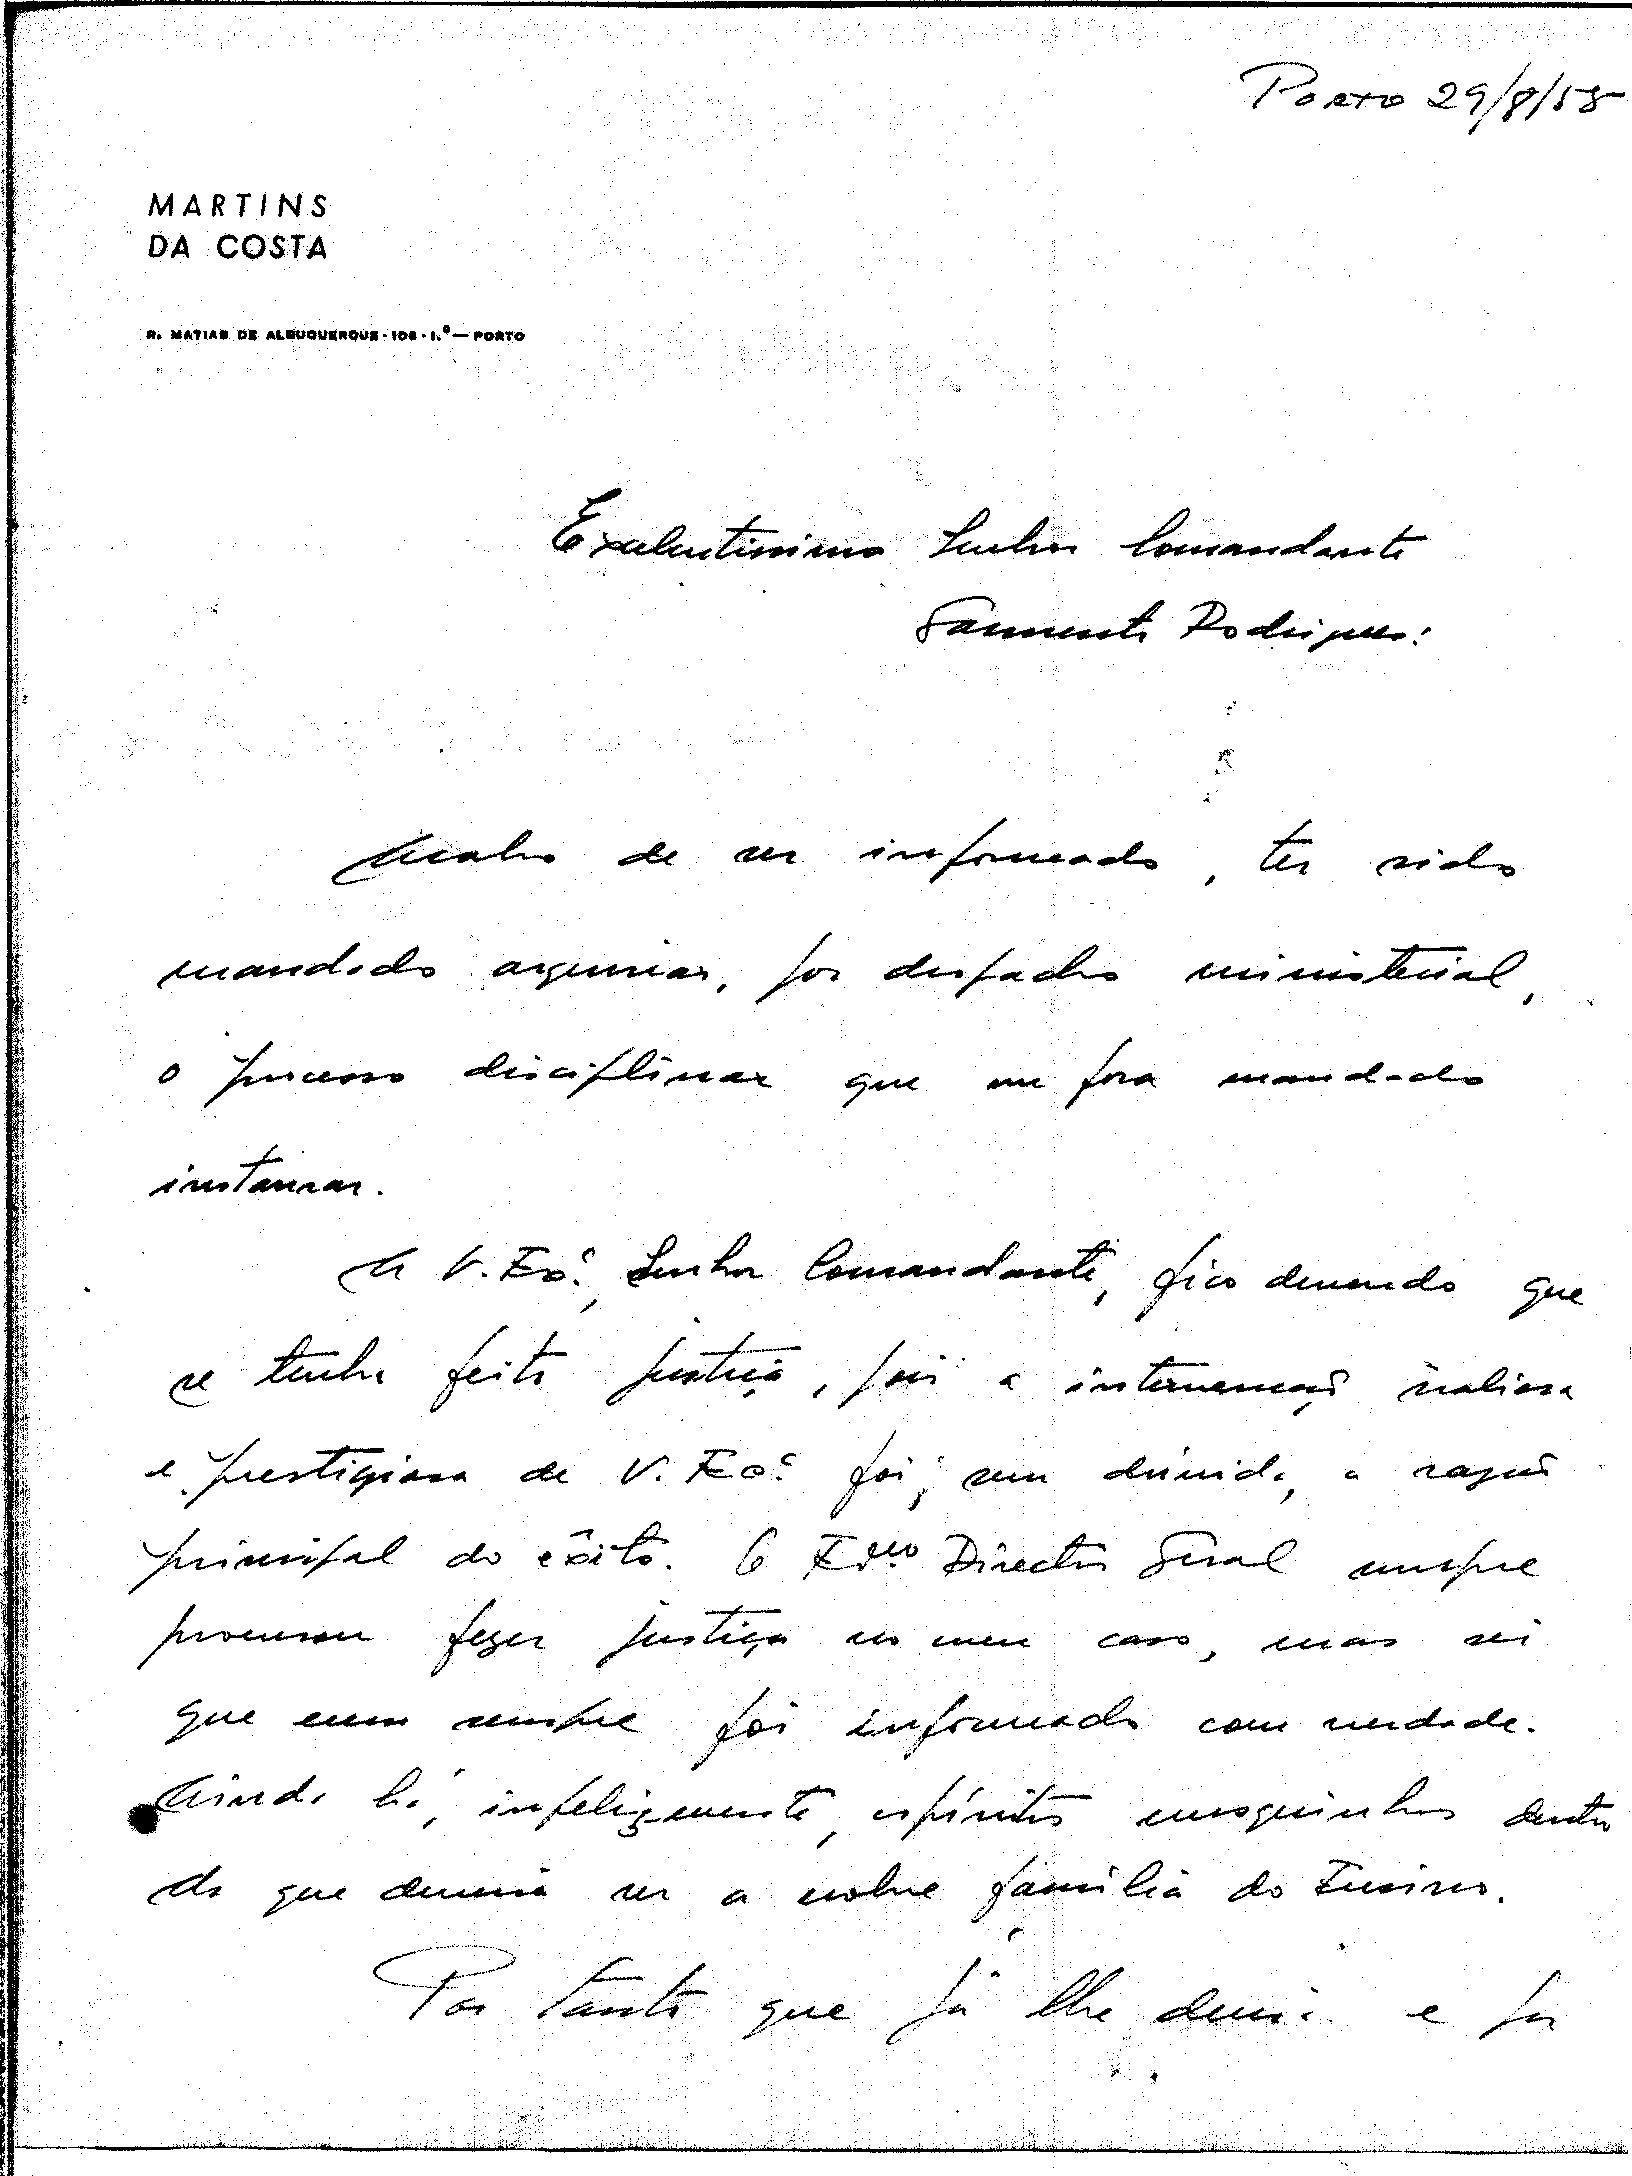 Porto 29/8/55
MARTINS
DA COSTA
R. MATIAS DE ALBUQUERQUE-108-1.º—PORTO
Excelentissimo Senhor Comandante
Sarmento Rodrigues:
Acabo de ser informado, ter sido
mandado arquivar, por despacho ministerial,
o processo disciplinar que me fora mandado
instaurar.
A V. Exª., Senhor Comandante, fico devendo que
se tenha feito justiça, pois a intervenção valiosa
e prestigiosa de V. Exª. foi, sem dúvida, a razão
principal do êxito. O Exmo Director Geral sempre
procurou fazer justiça no meu caso, mas sei
que nem sempre foi informado com verdade.
Ainda há, infelizmente, espíritos mesquinhos dentro
do que devia ser a nobre família do Ensino.
Por tanto que já lhe devia e por